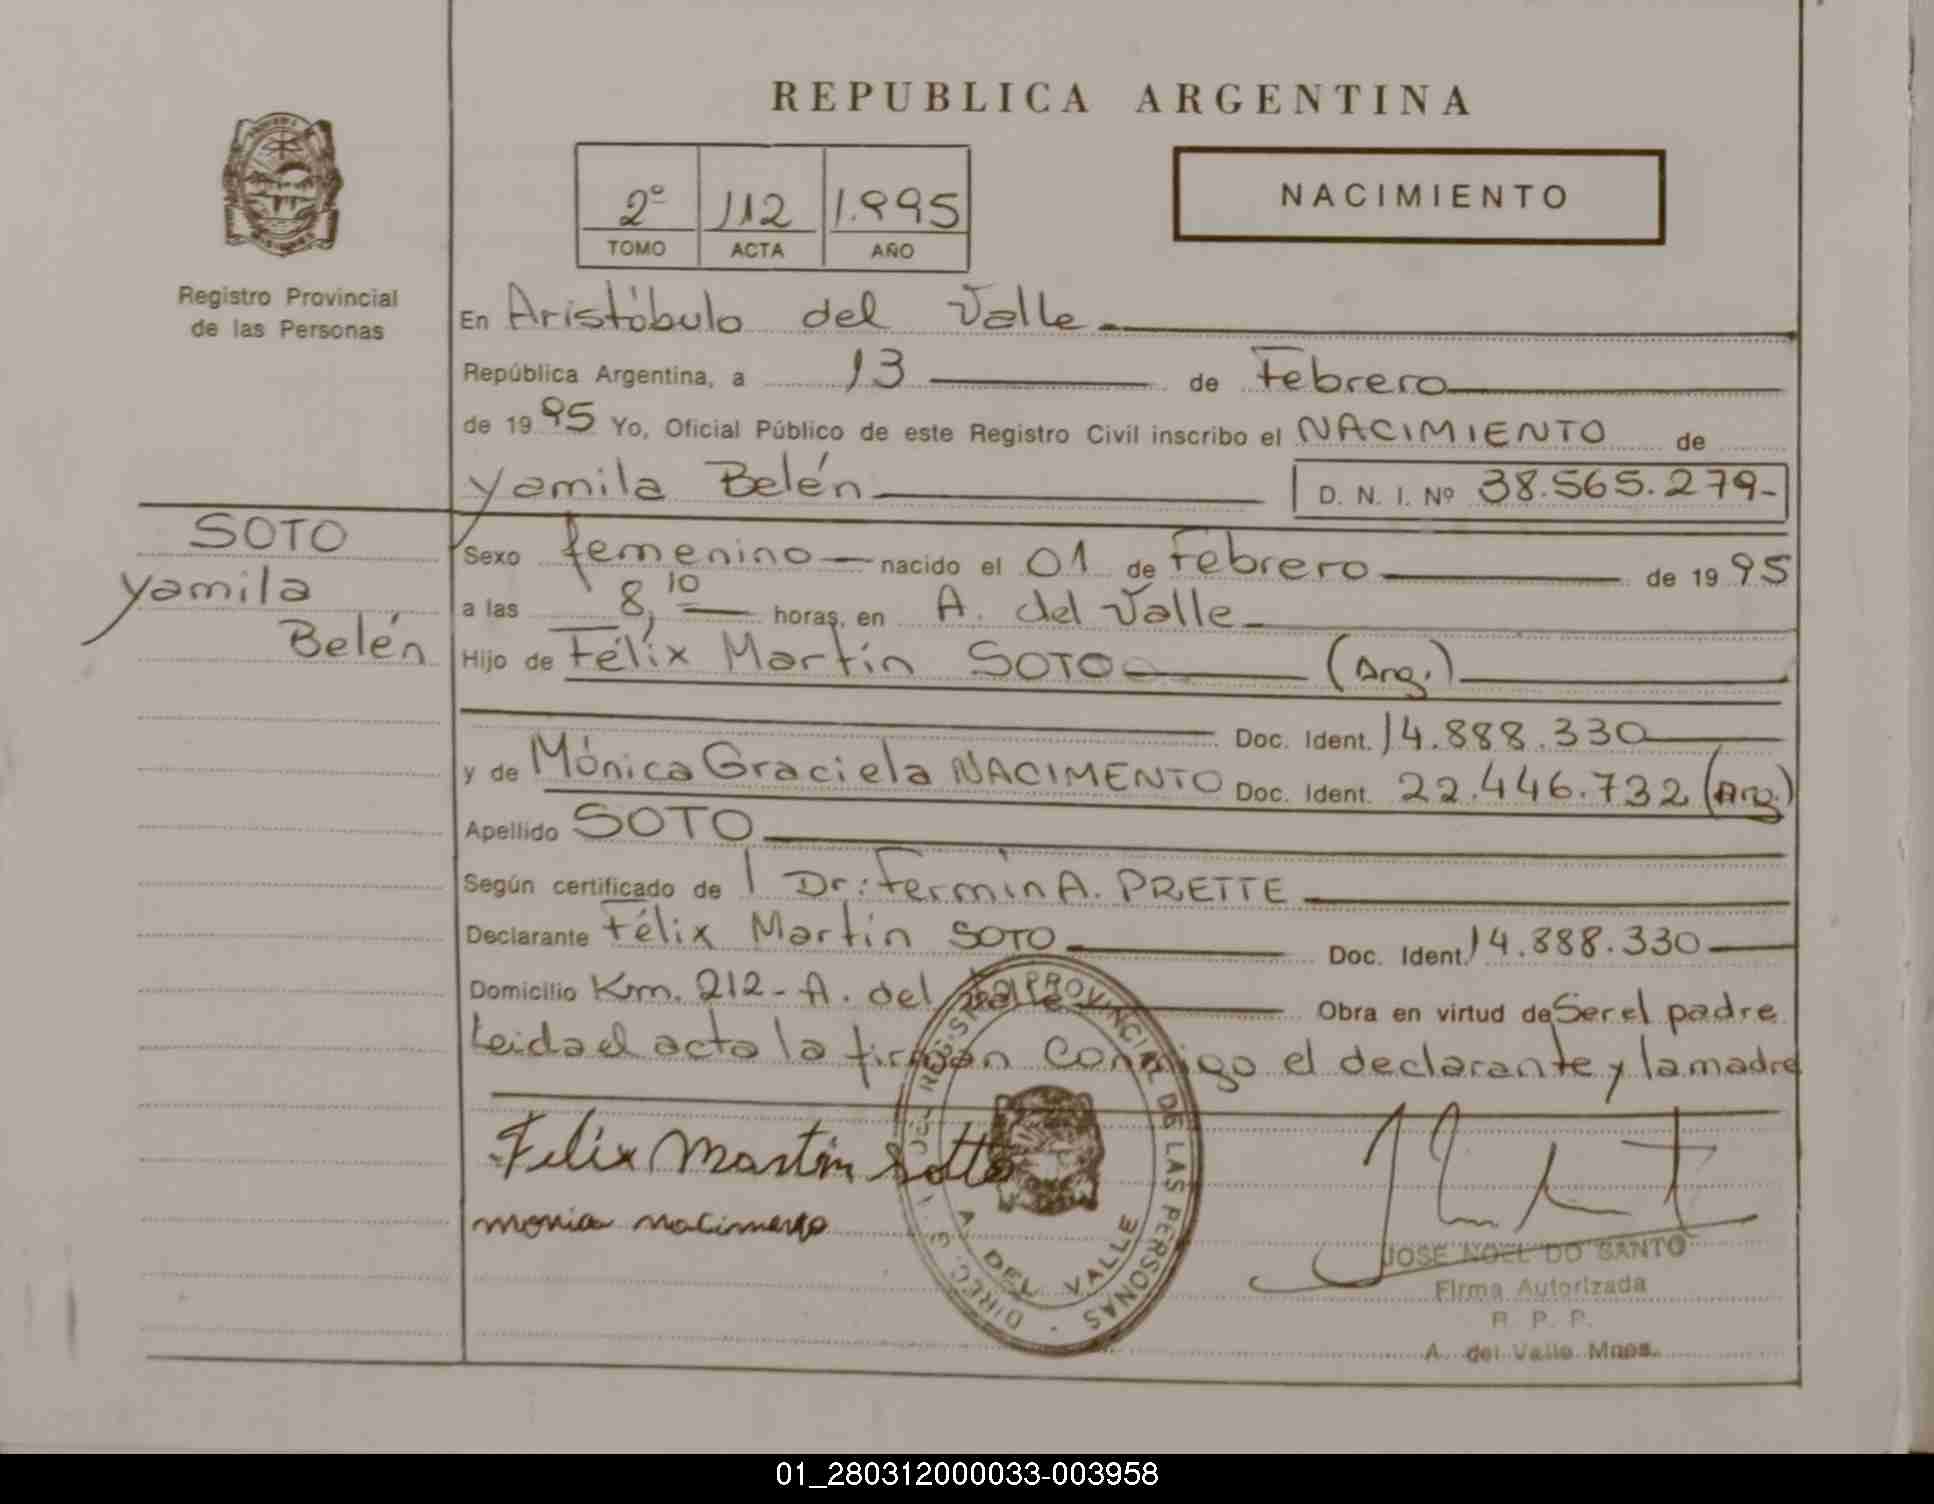 REPUBLICA ARGENTINA
2º 112 1.995
TOMO ACTA AÑO
NACIMIENTO
Registro Provincial
de las Personas
En Aristóbulo del Valle
República Argentina, a 13 de Febrero
de 1995 Yo, Oficial Público de este Registro Civil inscribo el NACIMIENTO de
Yamila Belén D. N. I. Nº 38.565.279-
SOTO
Yamila
Belén
Sexo femenino nacido el 01 de Febrero de 1995
a las 8,10 horas, en A. del Valle
Hijo de Félix Martín SOTO (Arg.)
Doc. Ident. 14.888.330
y de Mónica Graciela NACIMENTO Doc. Ident. 22.446.732 (Arg.)
Apellido SOTO
Según certificado de Dr: Fermin A. PRETTE
Declarante Félix Martín SOTO Doc. Ident. 14.888.330
Domicilio Km. 212- A. del Valle Obra en virtud de Ser el padre
Leida el acta la firman conmigo el declarante y la madre
Felix Martin Sotto
monia nacimento
REGISTRO PROVINCIAL DE LAS PERSONAS
A. DEL VALLE
JOSE NOEL DO SANTO
Firma Autorizada
R. P. P.
A. del Valle Mnes.
01_280312000033-003958